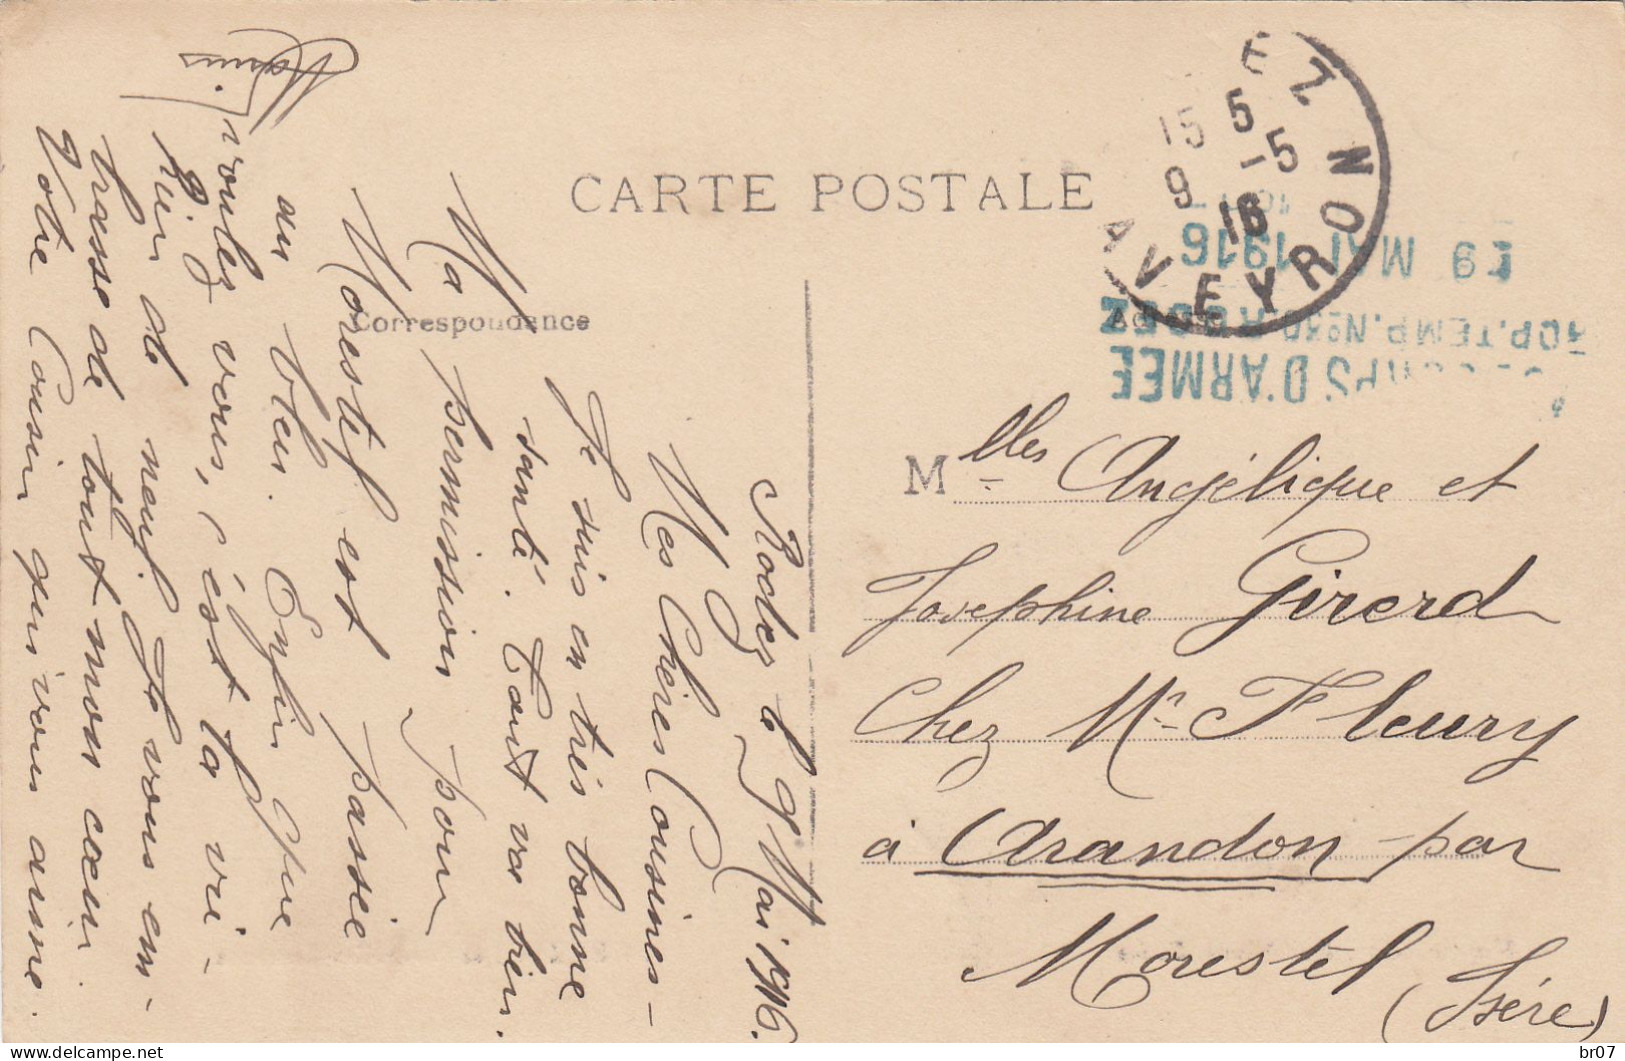 CARTE POSTALE
Correspondance
Rodez le 9 Mai 1916.
Mes Chères Cousines -
Je suis en très bonne
santé. Tout va bien.
Ma permission pour
Morestel est passée
au bleu. Enfin que
voulez vous, c'est la vie -
Rien de neuf. Je vous em-
brasse de tout mon cœur.
Votre Cousin qui vous aime.
Marius
EZ
AVEYRON
15 5
9 -5
16
CORPS D'ARMÉE
HOP. TEMP. N° 30. RODEZ
19 MAI 1916
Mlles Angélique et
Josephine Girerd
Chez Mr Fleury
à Arandon par
Morestel
(Isère)
br07